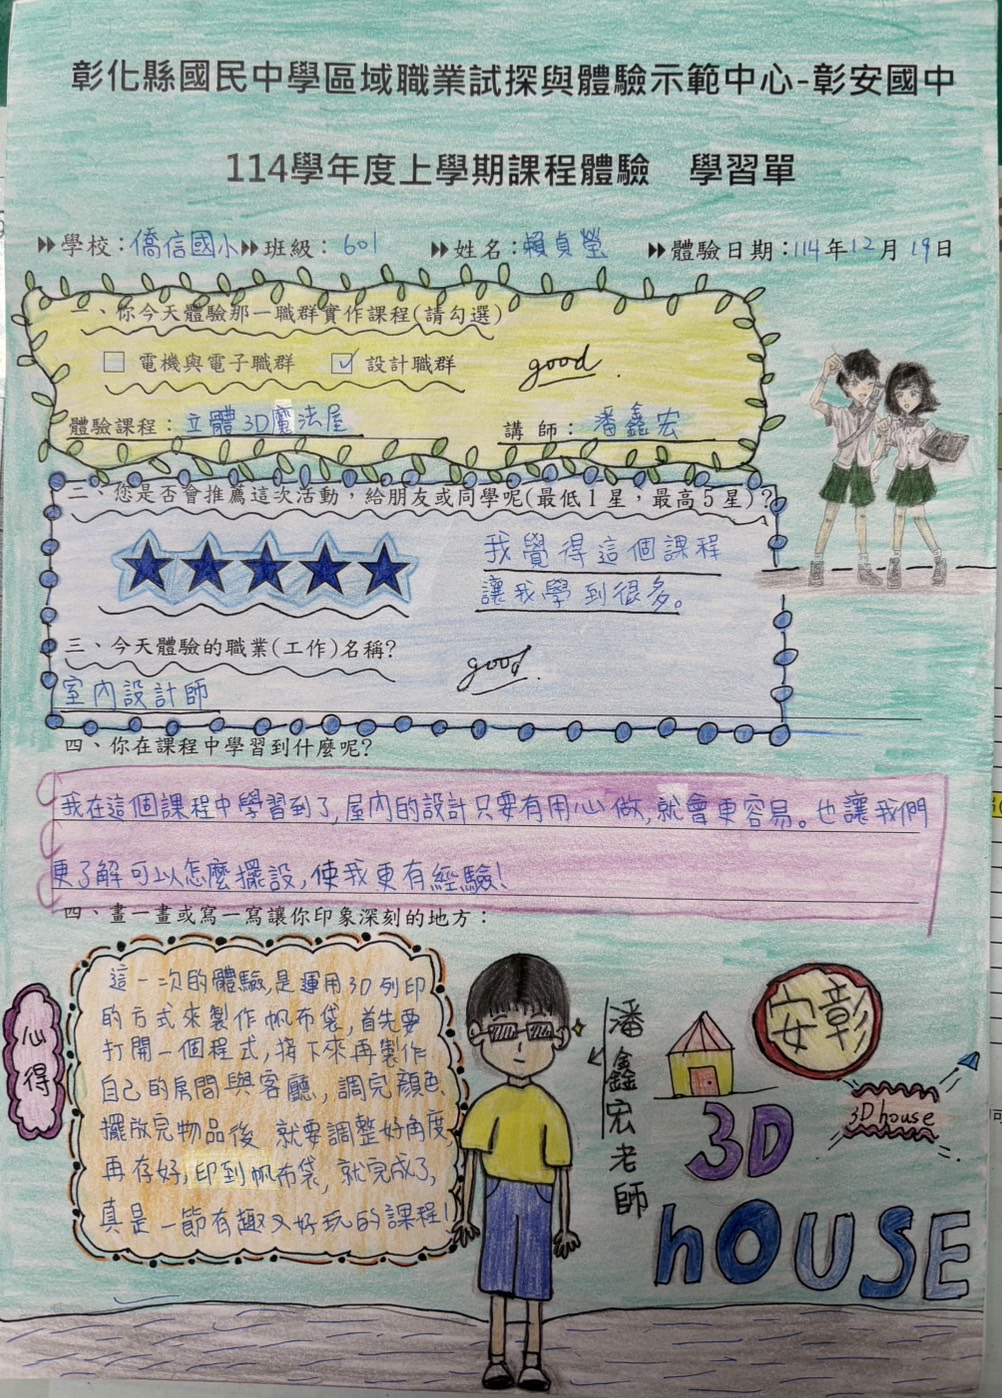 彰化縣國民中學區域職業試探與體驗示範中心-彰安國中
114學年度上學期課程體驗 學習單
學校：僑信國小 班級：601 姓名：賴貞瑩 體驗日期：114年12月19日
一、你今天體驗那一職群實作課程(請勾選)
□ 電機與電子職群 ☑ 設計職群 good.
體驗課程：立體3D魔法屋 講師：潘鑫宏
二、您是否會推薦這次活動，給朋友或同學呢(最低1星，最高5星)?
★★★★★ 我覺得這個課程
讓我學到很多。
三、今天體驗的職業(工作)名稱?
good.
室內設計師
四、你在課程中學習到什麼呢?
我在這個課程中學習到了,屋內的設計只要有用心做,就會更容易。也讓我們
更了解可以怎麼擺設,使我更有經驗!
四、畫一畫或寫一寫讓你印象深刻的地方：
心得
這一次的體驗,是運用3D列印
的方式來製作帆布袋,首先要
打開一個程式,接下來再製作
自己的房間與客廳,調完顏色、
擺放完物品後 就要調整好角度,
再存好,印到帆布袋,就完成了,
真是一節有趣又好玩的課程!
潘鑫宏老師
安彰
3D house
3D
hOUSE